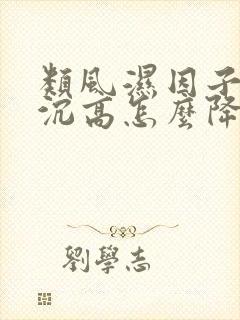 類風濕因子
沉高怎麼降
劉學志